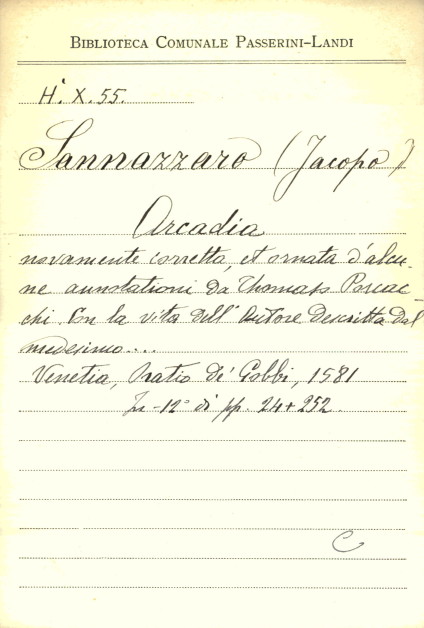 BIBLIOTECA COMUNALE PASSERINI-LANDI
H. X. 55.
Sannazzaro (Jacopo)
Arcadia
novamente corretta, et ornata d'alcu-
ne annotationi da Thomaso Porcac-
chi. Con la vita dell'Autore descritta dal
medesimo...
Venetia, Oratio de' Gobbi, 1581
In-12° di pp. 24+252.
C